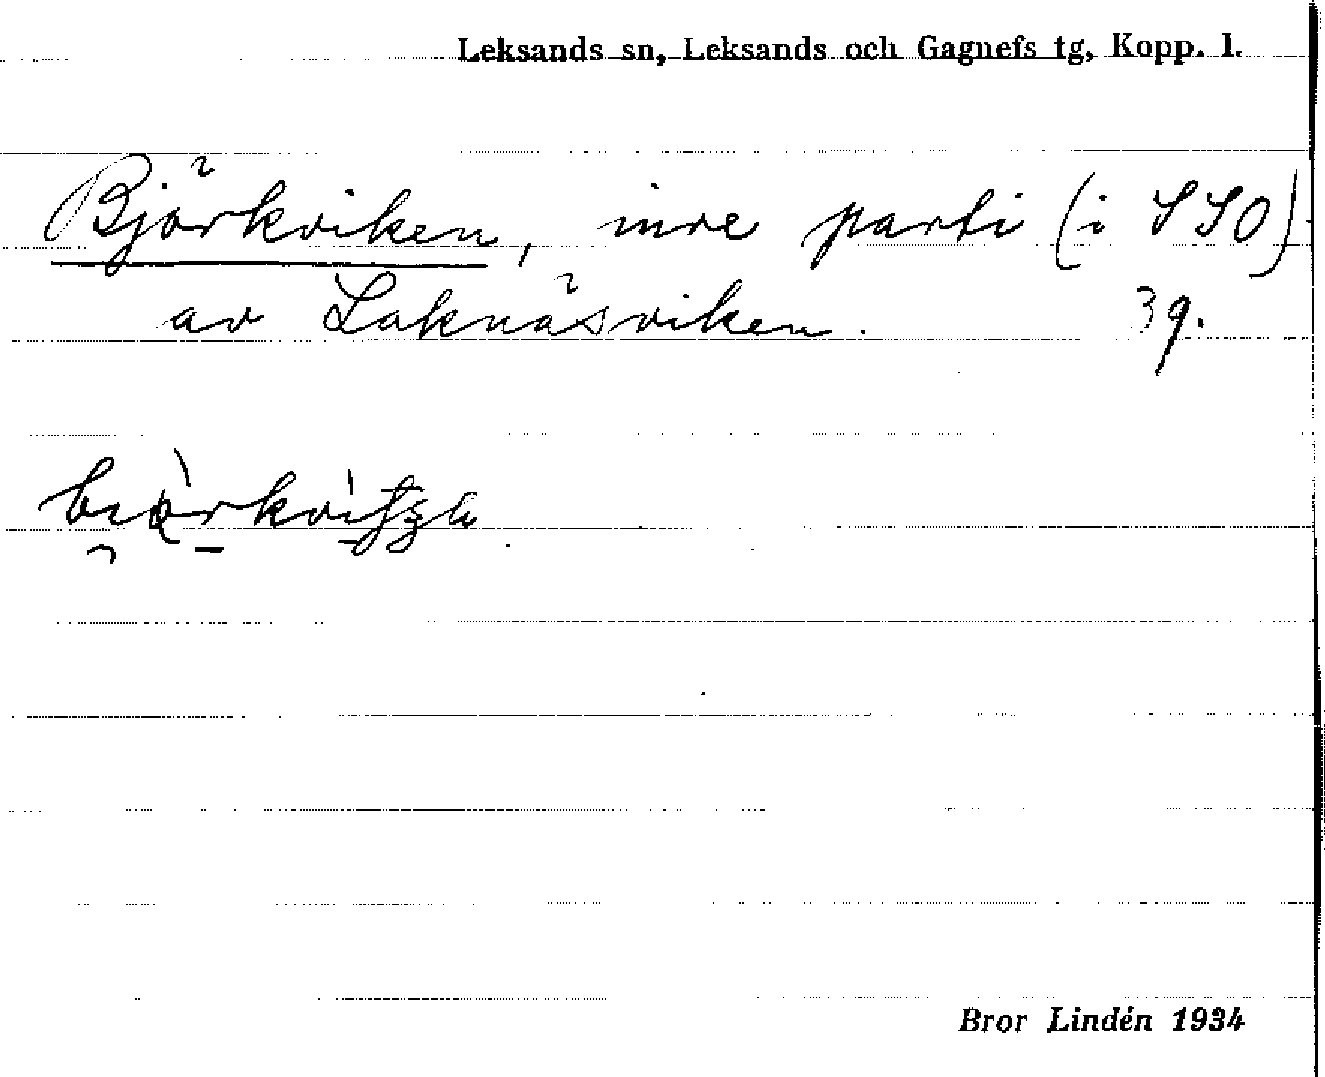 Leksands sn, Leksands och Gagnefs tg, Kopp. l.
Björkviken, inre parti (i SSO)
av Laknäsviken. 39.
Bror Lindén 1934